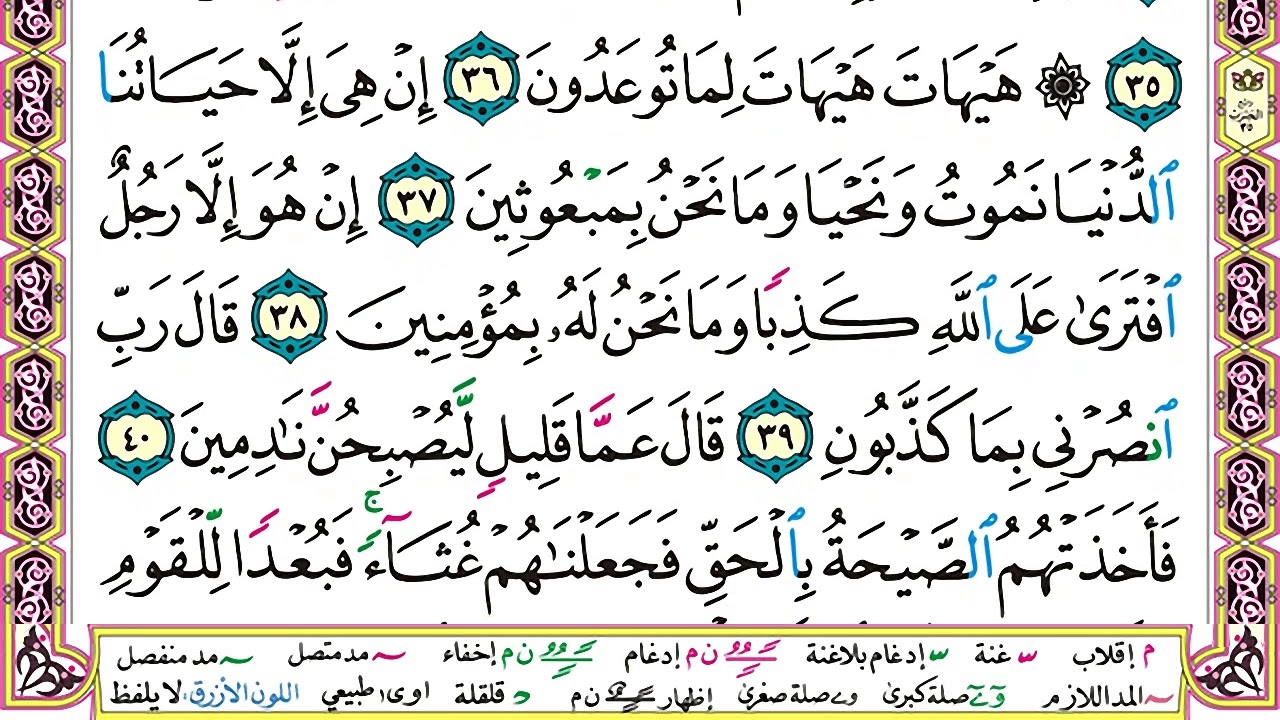 ٣٥ ۞ هَيْهَاتَ هَيْهَاتَ لِمَا تُوعَدُونَ ٣٦ إِنْ هِىَ إِلَّا حَيَاتُنَا
ٱلدُّنْيَا نَمُوتُ وَنَحْيَا وَمَا نَحْنُ بِمَبْعُوثِينَ ٣٧ إِنْ هُوَ إِلَّا رَجُلٌ
ٱفْتَرَىٰ عَلَى ٱللَّهِ كَذِبًا وَمَا نَحْنُ لَهُۥ بِمُؤْمِنِينَ ٣٨ قَالَ رَبِّ
ٱنصُرْنِى بِمَا كَذَّبُونِ ٣٩ قَالَ عَمَّا قَلِيلٍ لَّيُصْبِحُنَّ نَـٰدِمِينَ ٤٠
فَأَخَذَتْهُمُ ٱلصَّيْحَةُ بِٱلْحَقِّ فَجَعَلْنَـٰهُمْ غُثَآءً ۚ فَبُعْدًا لِّلْقَوْمِ
م إقلاب ّ غنة ّ إدغام بلاغنة ن م إدغام ن م إخفاء ~ مد متصل ~ مد منفصل
~ المد اللازم وے صلة كبرىٰ وے صلة صغرىٰ إظهار ن م د قلقلة اوى١ طبيعي اللون الأزرق: لا يلفظ